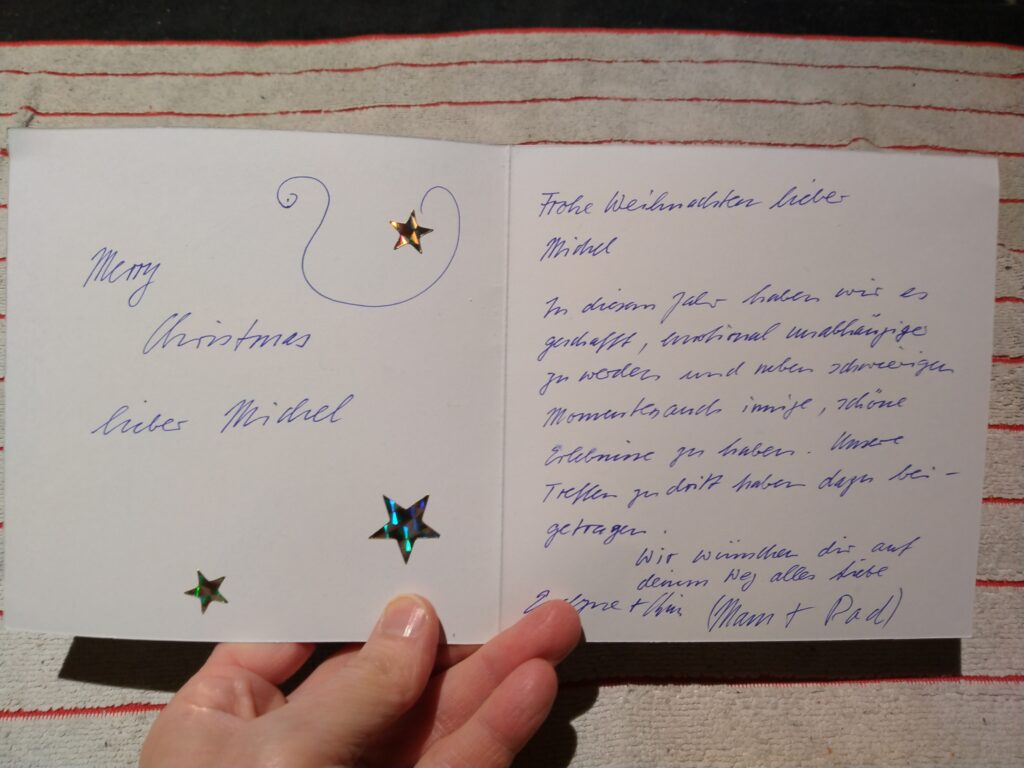 Merry
Christmas
lieber Michel
Frohe Weihnachten lieber
Michel
In diesem Jahr haben wir es
geschafft, emotional unabhängige
zu werden und neben schwierigen
Momenten auch innige, schöne
Erlebnisse zu haben. Unsere
Treffen zu dritt haben dazu bei-
getragen.
Wir wünschen dir auf
deinem Weg alles Liebe
+ (Mam + Pad)